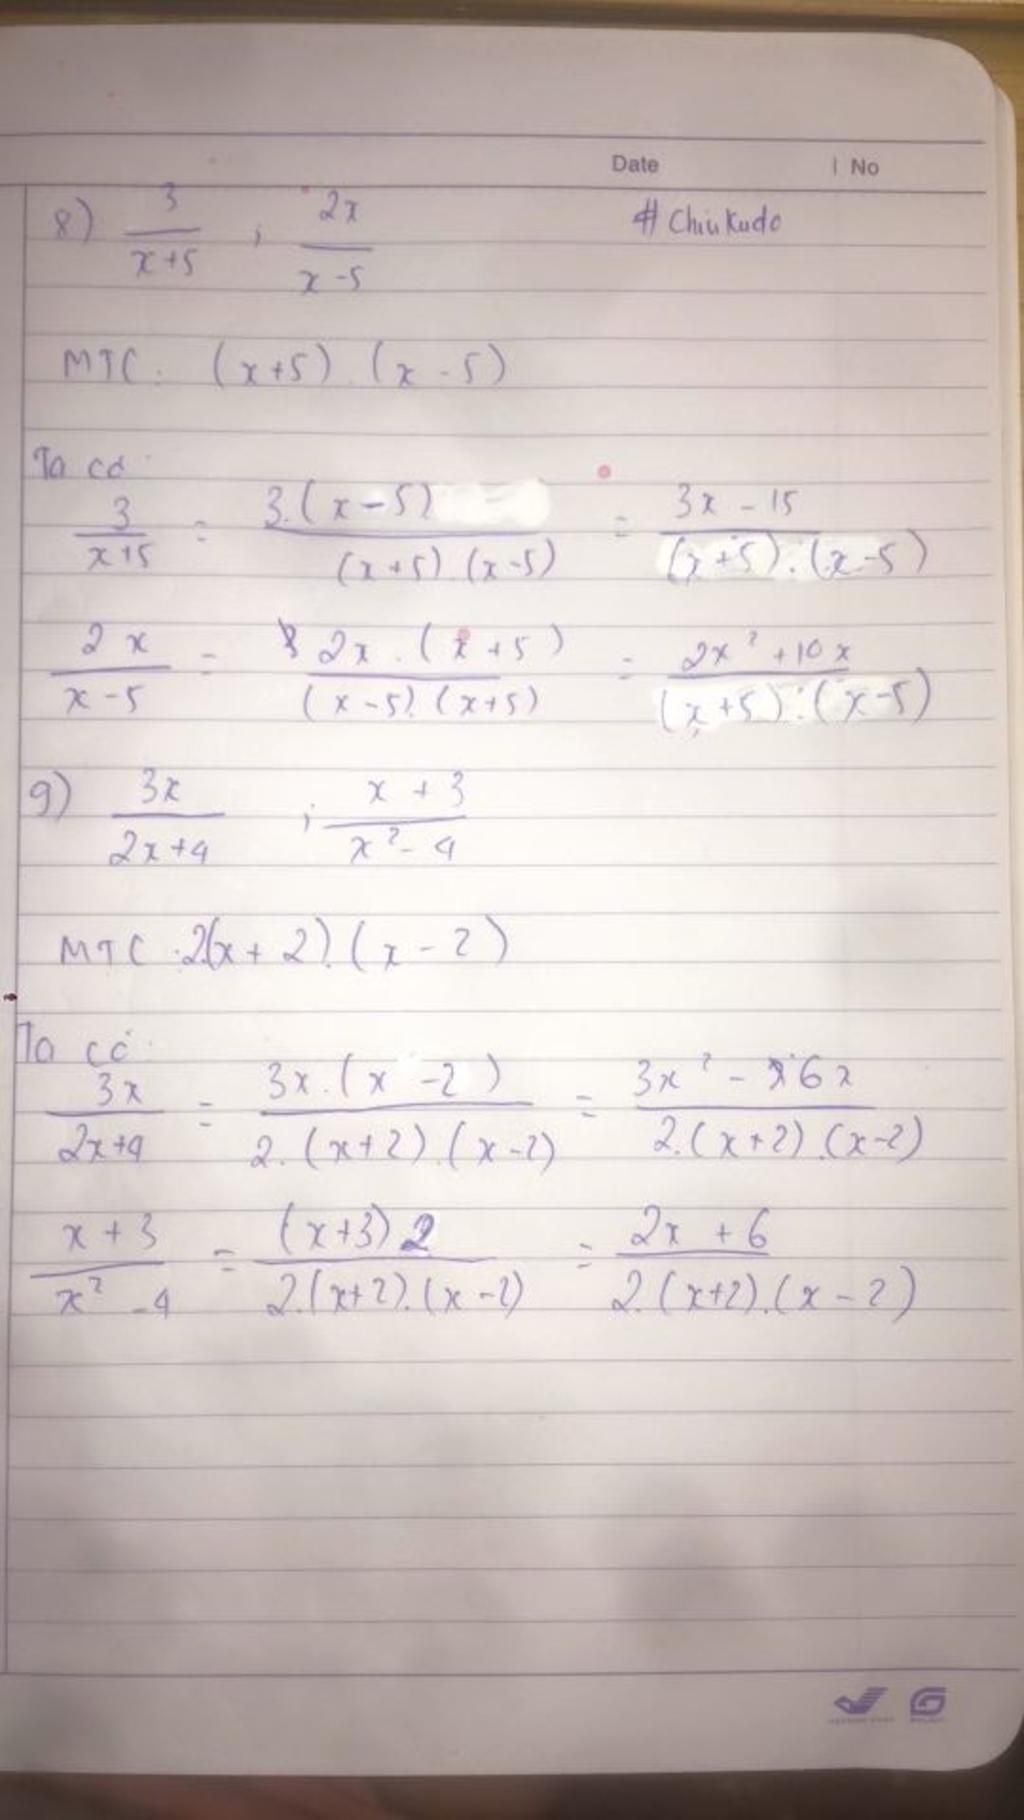 Date | No
8) 3/(x+5) ; 2x/(x-5) # Chiukudo
MTC: (x+5).(x-5)
Ta có:
3/(x+5) = 3.(x-5)/(x+5).(x-5) = 3x-15/(x+5).(x-5)
2x/(x-5) = 2x.(x+5)/(x-5).(x+5) = 2x²+10x/(x+5).(x-5)
9) 3x/(2x+4) ; x+3/(x²-4)
MTC: 2(x+2).(x-2)
Ta có:
3x/(2x+4) = 3x.(x-2)/2.(x+2).(x-2) = 3x²-6x/2.(x+2).(x-2)
x+3/(x²-4) = (x+3)2/2.(x+2).(x-2) = 2x+6/2.(x+2).(x-2)